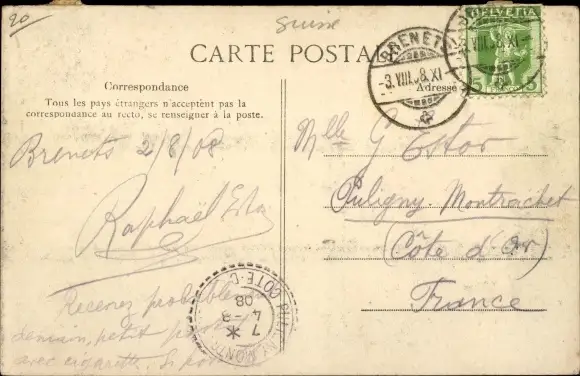 20
Suisse
CARTE POSTALE
HELVETIA
5
5
BRENETS
-3.VIII.08.XI
Correspondance
Tous les pays étrangers n'acceptent pas la
correspondance au recto, se renseigner à la poste.
Adresse
Brenets 2/8/08
Raphaël
Recevez probablement
demain, petit
avec cigarette. Si
Mlle G
Puligny-Montrachet
(Côte d'Or)
France
PULIGNY-MONTR
CÔTE-D
7 *
4 -8
08